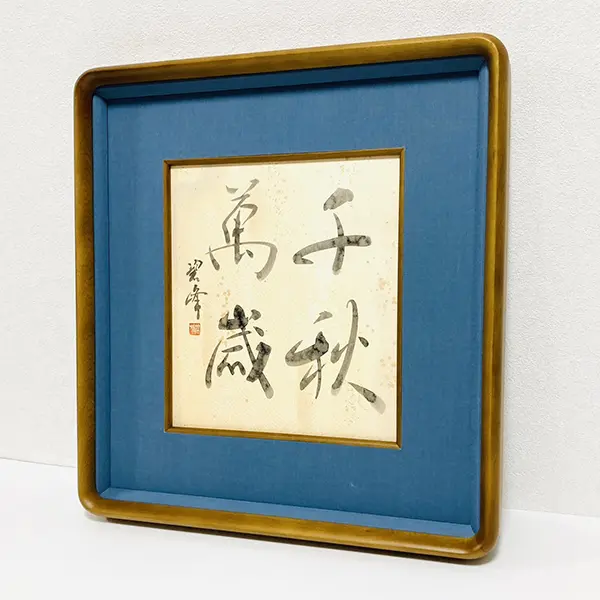 千秋
萬歳
碧峰